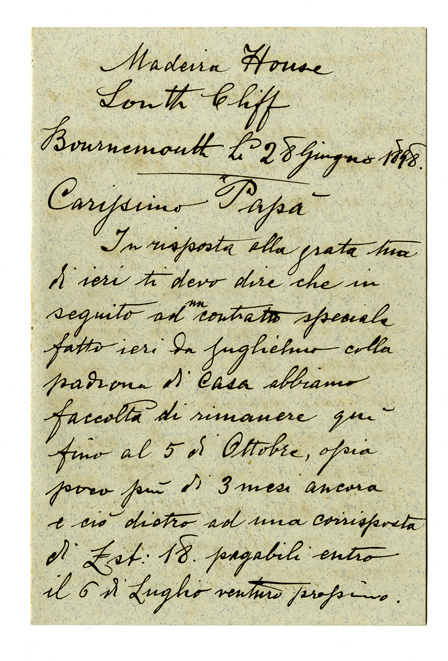 Madeira House
South Cliff
Bournemouth li 28 Giugno 1898.
Carissimo Papà
In risposta alla grata tua
di ieri ti devo dire che in
seguito ad un contratto speciale
fatto ieri da Guglielmo colla
padrona di Casa abbiamo
faccoltà di rimanere quì
fino al 5 di Ottobre, ossia
poco più di 3 mesi ancora
e ciò dietro ad una corrisposta
di £st: 18. pagabili entro
il 6 di Luglio venturo prossimo.